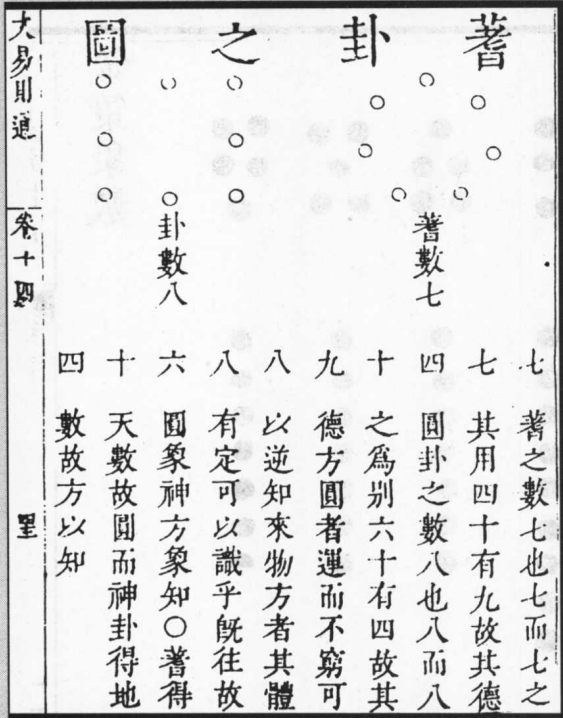 蓍卦之圖
蓍數七
卦數八
七七四十九八八六十四
蓍之數七也七而七之
其用四十有九故其德
圓卦之數八也八而八
之爲别六十有四故其
德方圓者運而不窮可
以逆知來物方者其體
有定可以識乎旣往故
圓象神方象知○蓍得
天數故圓而神卦得地
數故方以知
大易則通
卷十四